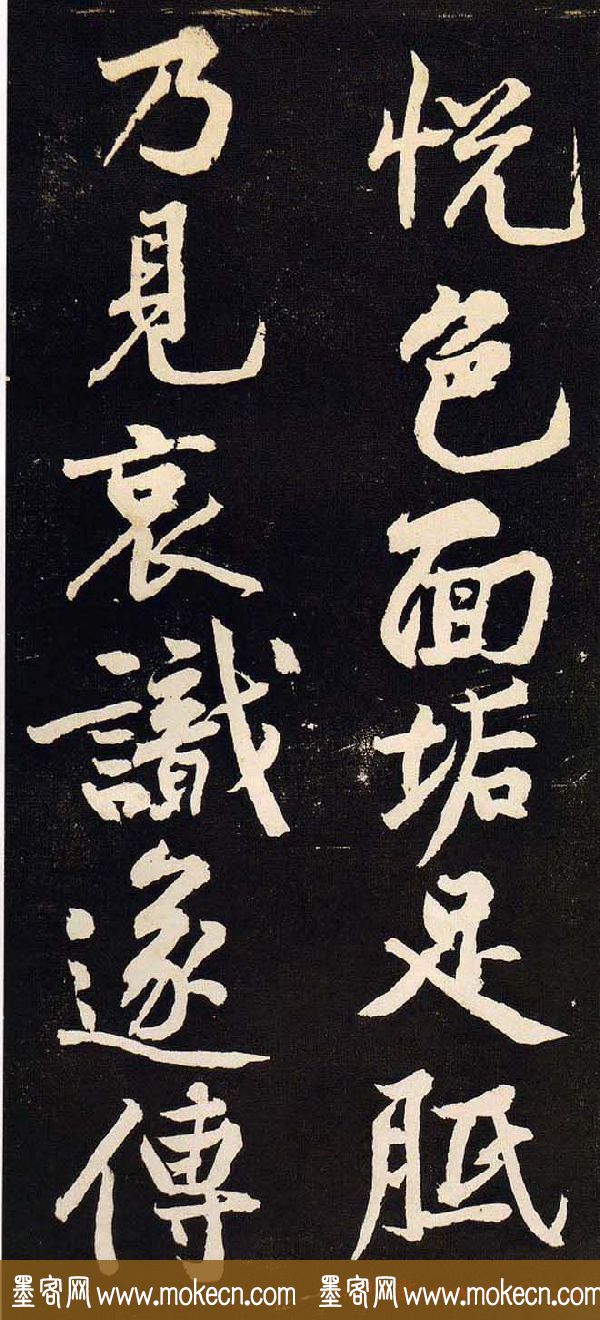 悦色面垢足胝
乃見哀識遂傳
墨客网 www.mokecn.com 墨客网 www.mokecn.com